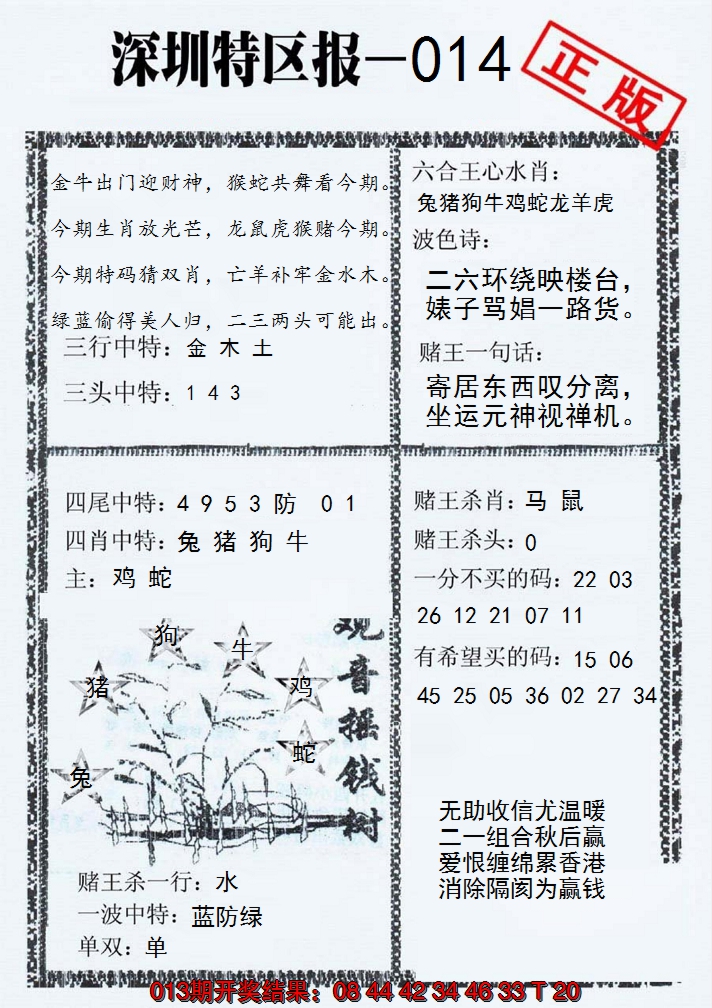 深圳特区报—014
正版
金牛出门迎财神，猴蛇共舞看今期。
今期生肖放光芒，龙鼠虎猴赌今期。
今期特码猜双肖，亡羊补牢金水木。
绿蓝偷得美人归，二三两头可能出。
三行中特：金 木 土
三头中特：1 4 3
六合王心水肖：
兔猪狗牛鸡蛇龙羊虎
波色诗：
二六环绕映楼台，
婊子骂娼一路货。
赌王一句话：
寄居东西叹分离，
坐运元神视禅机。
四尾中特：4 9 5 3 防 0 1
四肖中特：兔 猪 狗 牛
主：鸡 蛇
狗
牛
猪
鸡
蛇
兔
观音摇钱树
赌王杀一行：水
一波中特：蓝防绿
单双：单
赌王杀肖：马 鼠
赌王杀头：0
一分不买的码：22 03
26 12 21 07 11
有希望买的码：15 06
45 25 05 36 02 27 34
无助收信尤温暖
二一组合秋后赢
爱恨缠绵累香港
消除隔阂为赢钱
013期开奖结果：08 44 42 34 46 33 T 20